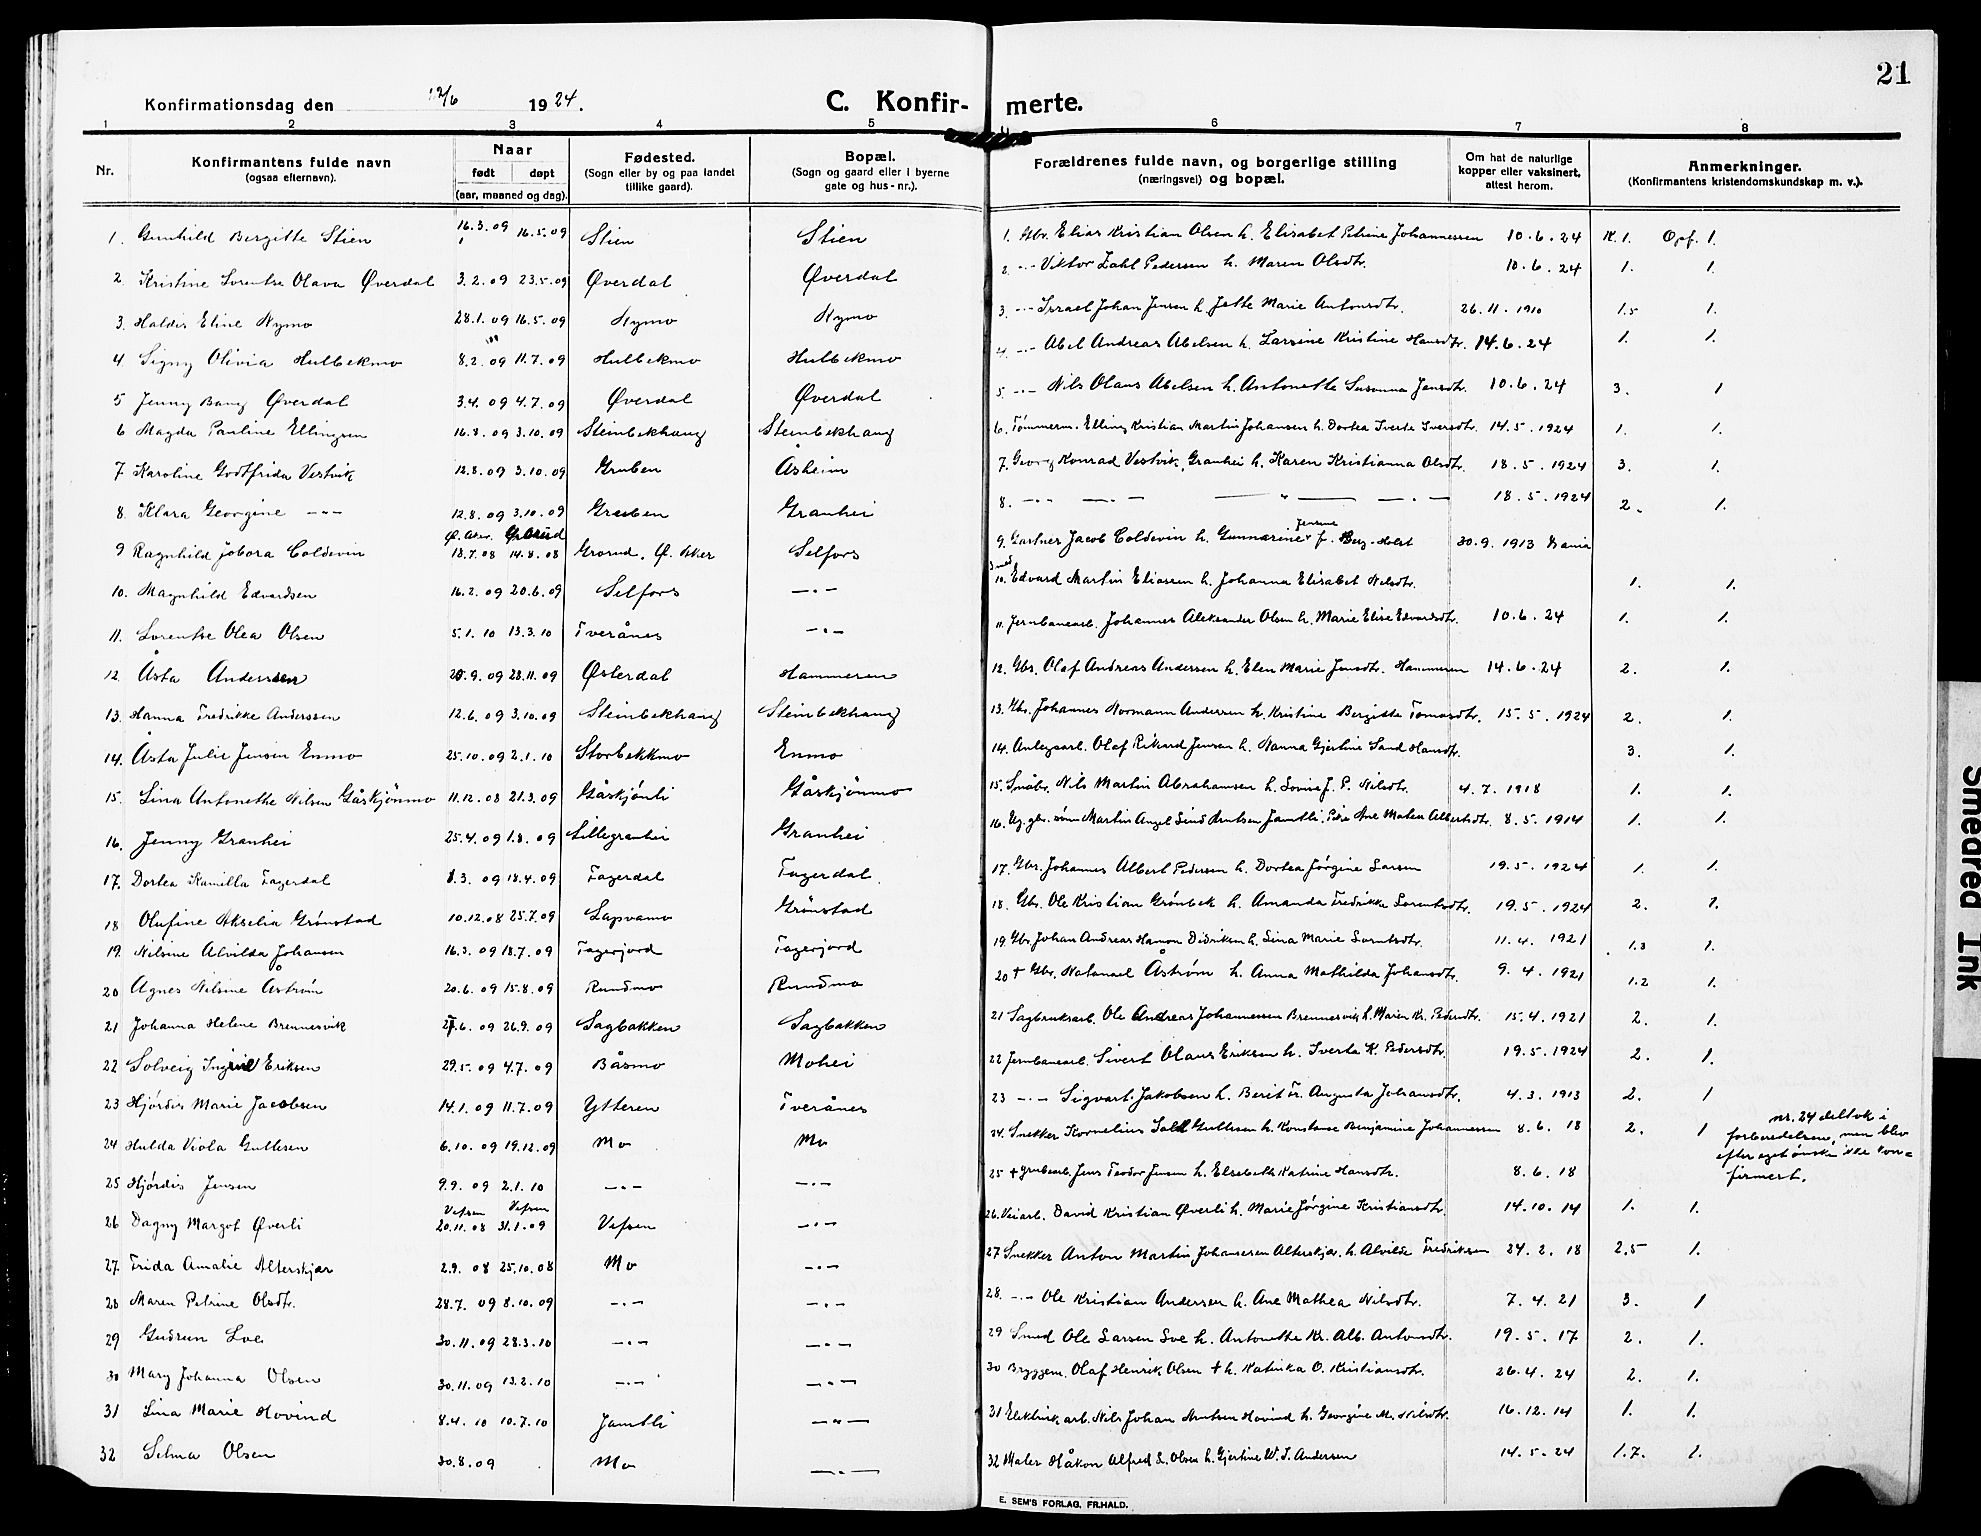 21
Konfirmationsdag den 12/6 1924. C. Konfir- merte.
1 2 3 4 5 6 7 8
Nr. Konfirmantens fulde navn (ogsaa efternavn). Naar født døpt (aar, maaned og dag). Fødested. (Sogn eller by og paa landet tillike gaard). Bopæl. (Sogn og gaard eller i byerne gate og hus-nr.). Forældrenes fulde navn, og borgerlige stilling (næringsvei) og bopæl. Om hat de naturlige kopper eller vaksinert, attest herom. Anmerkninger. (Konfirmantens kristendomskundskap m. v.).
1. Gunhild Bergitte Stien 16.3.09 16.5.09 Stien Stien 1. Gbr. Elias Kristian Olsen h. Elisabet Petrine Johannessen 10.6.24 K. 1. Opf. 1.
2 Kristine Lorentse Olava Øverdal 3.2.09 23.5.09 Øverdal Øverdal 2. -"- Viktor Zahl Pedersen h. Maren Olsdtr. 10.6.24 1. 1.
3. Haldis Eline Nymo 28.1.09 16.5.09 Nymo Nymo 3. -"- Israel Johan Jensen h. Jette Marie Antonsdtr. 26.11.1910 1.5 1.
4 Signy Olivia Hulbekmo 8.2.09 11.7.09 Hulbekmo Hulbekmo 4. -"- Abel Andreas Abelsen h. Larsine Kristine Hansdtr. 14.6.24 1. 1.
5 Jenny Bang Øverdal 3.4.09 4.7.09 Øverdal Øverdal 5. -"- Nils Olaus Abelsen h. Antonette Susanna Jensdtr. 10.6.24 3. 1
6 Magda Pauline Ellingsen 16.8.09 3.10.09 Steinbekhaug Steinbekhaug 6. Tømmerm. Elling Kristian Martin Johansen h. Dortea Iverte Iversdtr. 14.5.1924 1. 1.
7 Karoline Godtfrida Vestvik 12.8.09 3.10.09 Gruben Åsheim 7. Georg Konrad Vestvik, Granhei h. Karen Kristianna Olsdtr. 18.5.1924 3. 1.
8. Klara Georgine -"- 12.8.09 3.10.09 Gruben Granhei 8. -"- -"- -"- -"- 18.5.1924 2. 1.
9 Ragnhild Jobora Coldevin Ø. Aker. 13.7.08 Grorud 14.8.08 Grorud, Ø. Aker Selfors 9. Gartner Jacob Coldevin h. Gunnarine Jensine f. Berg-Holst 30.9.1913 Dania
10. Magnhild Edvardsen 16.2.09 20.6.09 Selfors -"- 10. Smed Edvard Martin Eliassen h. Johanna Elisabet Nilsdtr. 1. 1.
11. Lorentse Olea Olsen 5.1.10 13.3.10 Tverånes -"- 11. Jernbanearb. Johannes Aleksander Olsen h. Marie Elise Edvardsdtr. 10.6.24 1. 1.
12. Åsta Anderssen 20.9.09 28.11.09 Østerdal Hammeren 12. Gbr. Olaf Andreas Andersen h. Elen Marie Jensdtr. Hammeren 14.6.24 2. 1.
13. Hanna Fredrikke Anderssen 12.6.09 3.10.09 Steinbekhaug Steinbekhaug 13. Gbr. Johannes Normann Andersen h. Kristine Bergitte Tomasdtr. 15.5.1924 2. 1.
14. Åsta Julie Jensen Enmo 25.10.09 2.1.10 Storbekkmo Enmo 14. Anlegsarb. Olaf Rikard Jensen h. Nanna Gjertine Sand Hansdtr. 3. 1.
15. Lina Antonette Nilsen Gåskjønmo 11.12.08 21.3.09 Gåskjønli Gåskjønmo 15. Småbr. Nils Martin Abrahamsen h. Lovise J. P. Nilsdtr. 4.7.1918 1. 1.
16. Jenny Granhei 25.4.09 1.8.09 Lillegranhei Granhei 16. Ug. gbr. sønn Martin Angel Sund Knutsen Jamtli, Pike Ane Malea Albertsdtr. 8.5.1914 1. 1.
17. Dortea Kamilla Fagerdal 8.3.09 18.4.09 Fagerdal Fagerdal 17. Gbr. Johannes Albert Pedersen h. Dortea Jørgine Larsen 19.5.1924 1. 1.
18 Olufine Akselia Grønstad 10.12.08 25.7.09 Lapvamo Grønstad 18. Gbr. Ole Kristian Grønbek h. Amanda Fredrikke Lorentsdtr. 19.5.1924 2. 1.
19. Nilsine Alvilda Johansen 16.3.09 18.7.09 Fagerjord Fagerjord 19. Gbr. Johan Andreas Hanson Didriksen h. Lina Marie Lorntsdtr. 11.4.1921 1.3 1.
20 Agnes Nilsine Åstrøm 20.6.09 15.8.09 Rundmo Rundmo 20 + Gbr. Natanael Åstrøm h. Anna Mathilda Johansdtr. 9.4.1921 1.2 1.
21 Johanna Helene Brennesvik 27.6.09 26.9.09 Sagbakken Sagbakken 21 Sagbruksarb. Ole Andreas Johannessen Brennesvik h. Maren Kr. Pedersdtr. 15.4.1921 2. 1.
22 Solveig Ingrid Eriksen 29.5.09 4.7.09 Båsmo Mohei 22 Jernbanearb. Sivert Olaus Eriksen h. Iverta K. Pedersdtr. 19.5.1924 2. 1.
23 Hjørdis Marie Jacobsen 14.1.09 11.7.09 Ytteren Tverånes 23 -"- Sigvart Jakobsen h. Berit Fr. Augusta Johansdtr. 4.3.1913 2. 1
24 Hulda Viola Gullesen 6.10.09 19.12.09 Mo Mo 24. Snekker Kornelius Gullesen h. Konstanse Benjamine Johannessen 8.6.18 2. 1 nr. 24 deltok i
forberedelsen, men blev
efter eget ønske ikke kon=
firmert.
25 Hjørdis Jensen 9.9.09 2.1.10 -"- -"- 25 + grubearb. Jens Teodor Jensen h. Elsebeth Katrine Hansdtr. 8.6.18
26 Dagny Margot Øverli Vefsen 20.11.08 Vefsen 31.1.09 Vefsen -"- 26. Veiarb. David Kristian Øverli h. Marie Jørgine Kristiansdtr. 14.10.14 1. 1.
27. Frida Amalie Alterskjær 2.9.08 25.10.08 Mo -"- 27 Snekker Anton Martin Johansen Alterskjær h. Alvilde Fredriksen 24.2.18 2,5 1.
28 Maren Petrine Olsdtr. 28.7.09 8.10.09 -"- -"- 28. -"- Ole Kristian Andersen h. Ane Mathea Nilsdtr. 7.4.21 3. 1
29 Gudrun Loe 30.11.09 28.3.10 -"- -"- 29 Smed Ole Larsen Loe h. Antonette Kr. Alb. Antonsdtr. 19.5.17 2. 1.
30 Mary Johanna Olsen 30.11.09 13.2.10 -"- -"- 30 Bryggem. Olaf Henrik Olsen + h. Katinka O. Kristiansdtr. 26.4.24 2. 1.
31 Lina Marie Hovind 8.4.10 10.7.10 Jamtli -"- 31 Elektrik.arb. Nils Johan Knutsen Hovind h. Georgine M. Nilsdtr. 16.12.14 1. 1.
32 Selma Olsen 30.8.09 Mo -"- 32 Maler Håkon Alfred L. Olsen h. Gjertine W. I. Andersen 14.5.24 1.7. 1.
E. SEM'S FORLAG, FR.HALD.
Smeared Ink